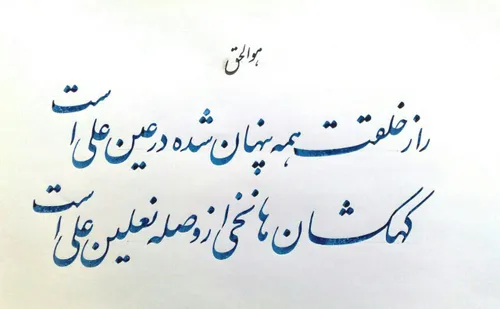 هوالحق
راز خلقت همه پنهان شده در عین علی است
کهکشان ها نخی از وصله نعلین علی است